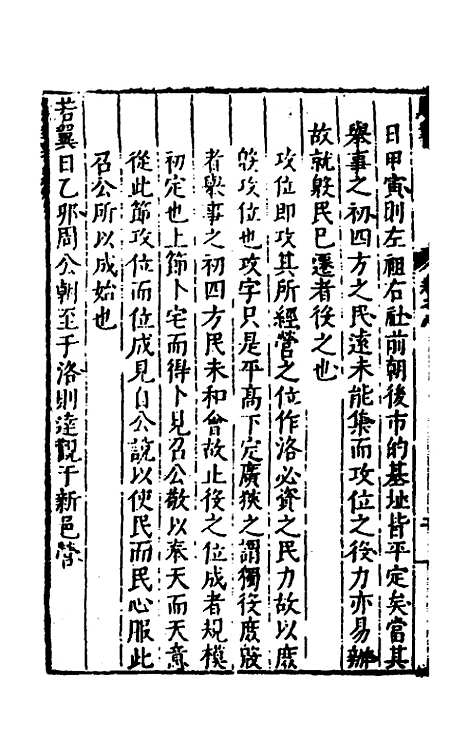 日甲寅則左祖右社前朝後市的基址皆平定矣當其
舉事之初四方之民遠未能集而攻位之役力亦易辦
故就殷民已遷者役之也
攻位即攻其所經營之位作洛必資之民力故以庶
殷攻位也攻字只是平高下定廣狹之謂獨役庶殷
者與事之初四方民未和會故止役之位成者規模
初定也上節卜宅而得卜見召公敬以奉天而天意
從此節攻位而位成見自公說以使民而民心服此
召公所以成始也
若翼日乙卯周公朝至于洛則達觀于新邑營